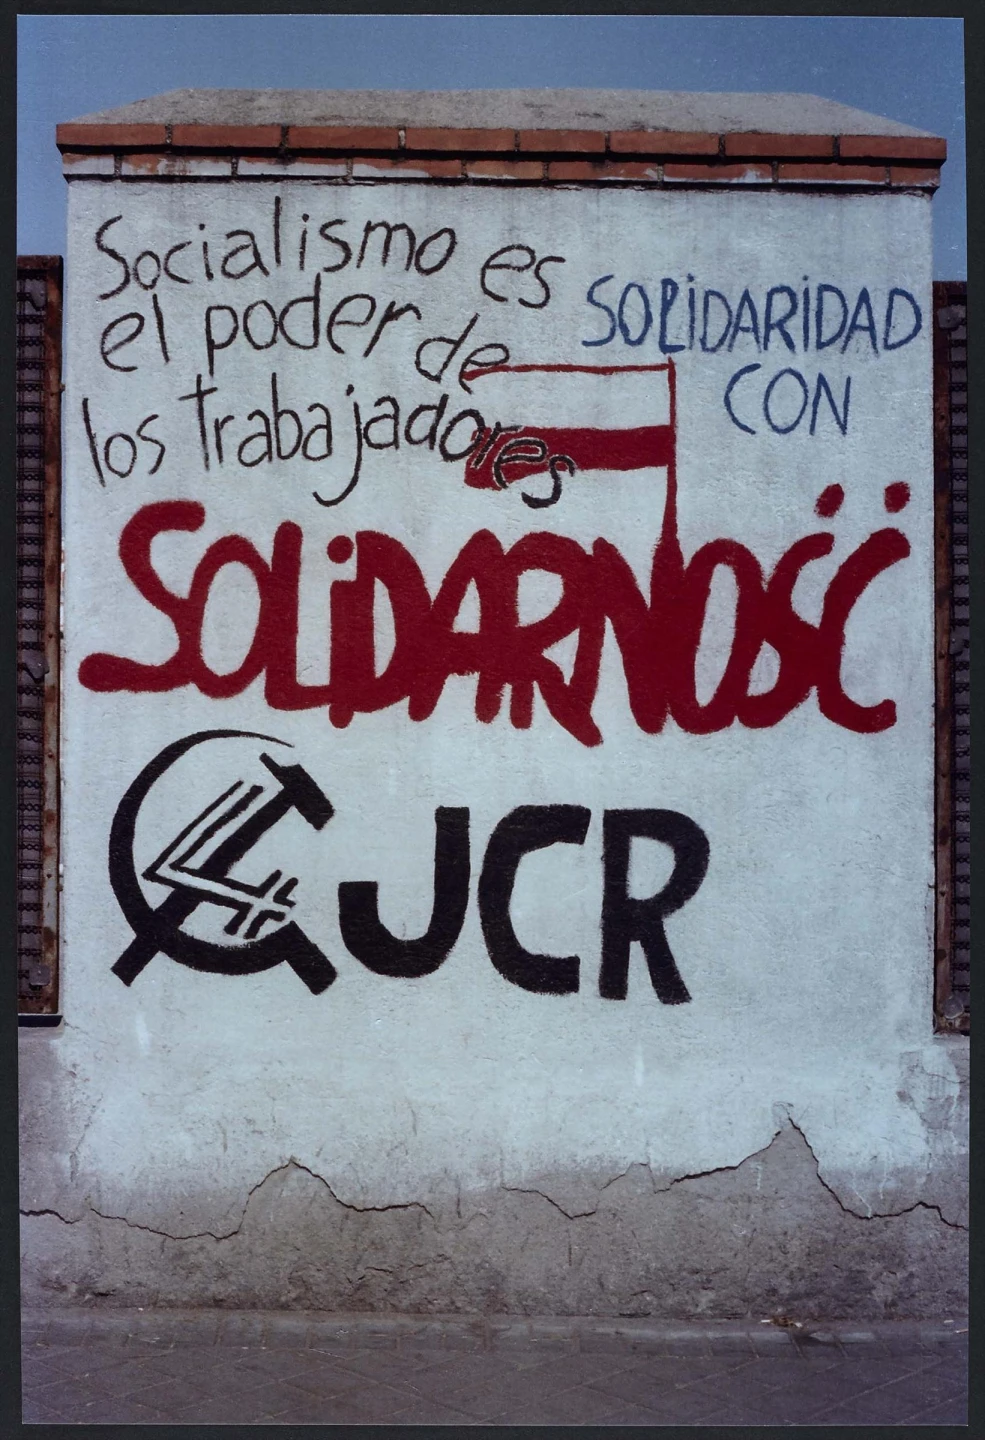 Socialismo es
el poder de
los trabajadores
SOLiDARiDAD
CON
SOLiDARNOŚĆ
JCR